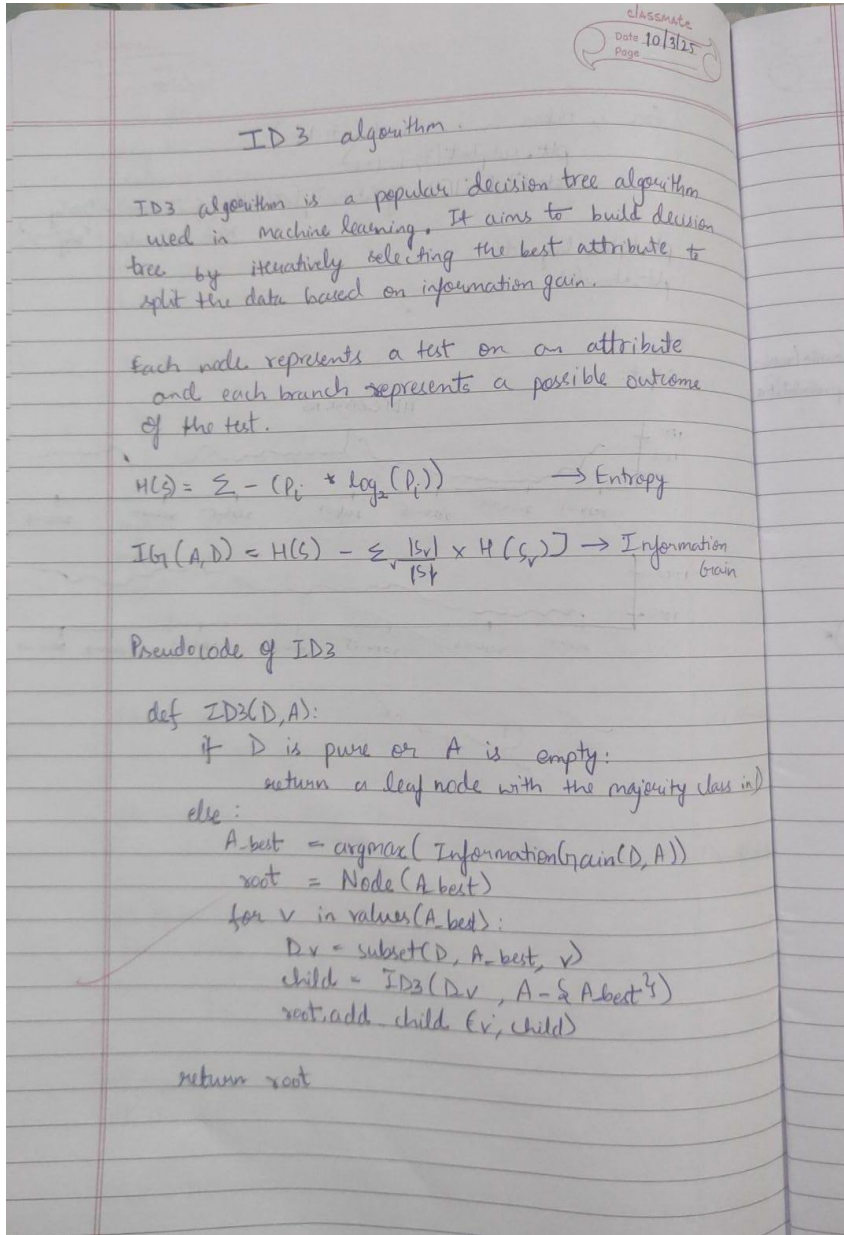 classmate
Date 10/3/25
Page
ID3 algorithm.
ID3 algorithm is a popular decision tree algorithm
used in machine learning. It aims to build decision
tree by iteratively selecting the best attribute to
split the data based on information gain.
Each node represents a test on an attribute
and each branch represents a possible outcome
of the test.
H(S) = Σ - (Pᵢ * log₂(Pᵢ)) → Entropy
IG(A,D) = H(S) - Σᵥ |Sv|/|S| × H(Sᵥ)] → Information
Gain
Pseudocode of ID3
def ID3(D,A):
if D is pure or A is empty:
return a leaf node with the majority class in D
else:
A_best = argmax(InformationGain(D, A))
root = Node(A_best)
for v in values(A_best):
Dv = subset(D, A_best, v)
child = ID3(Dv, A-{A_best})
root.add_child(v, child)
return root